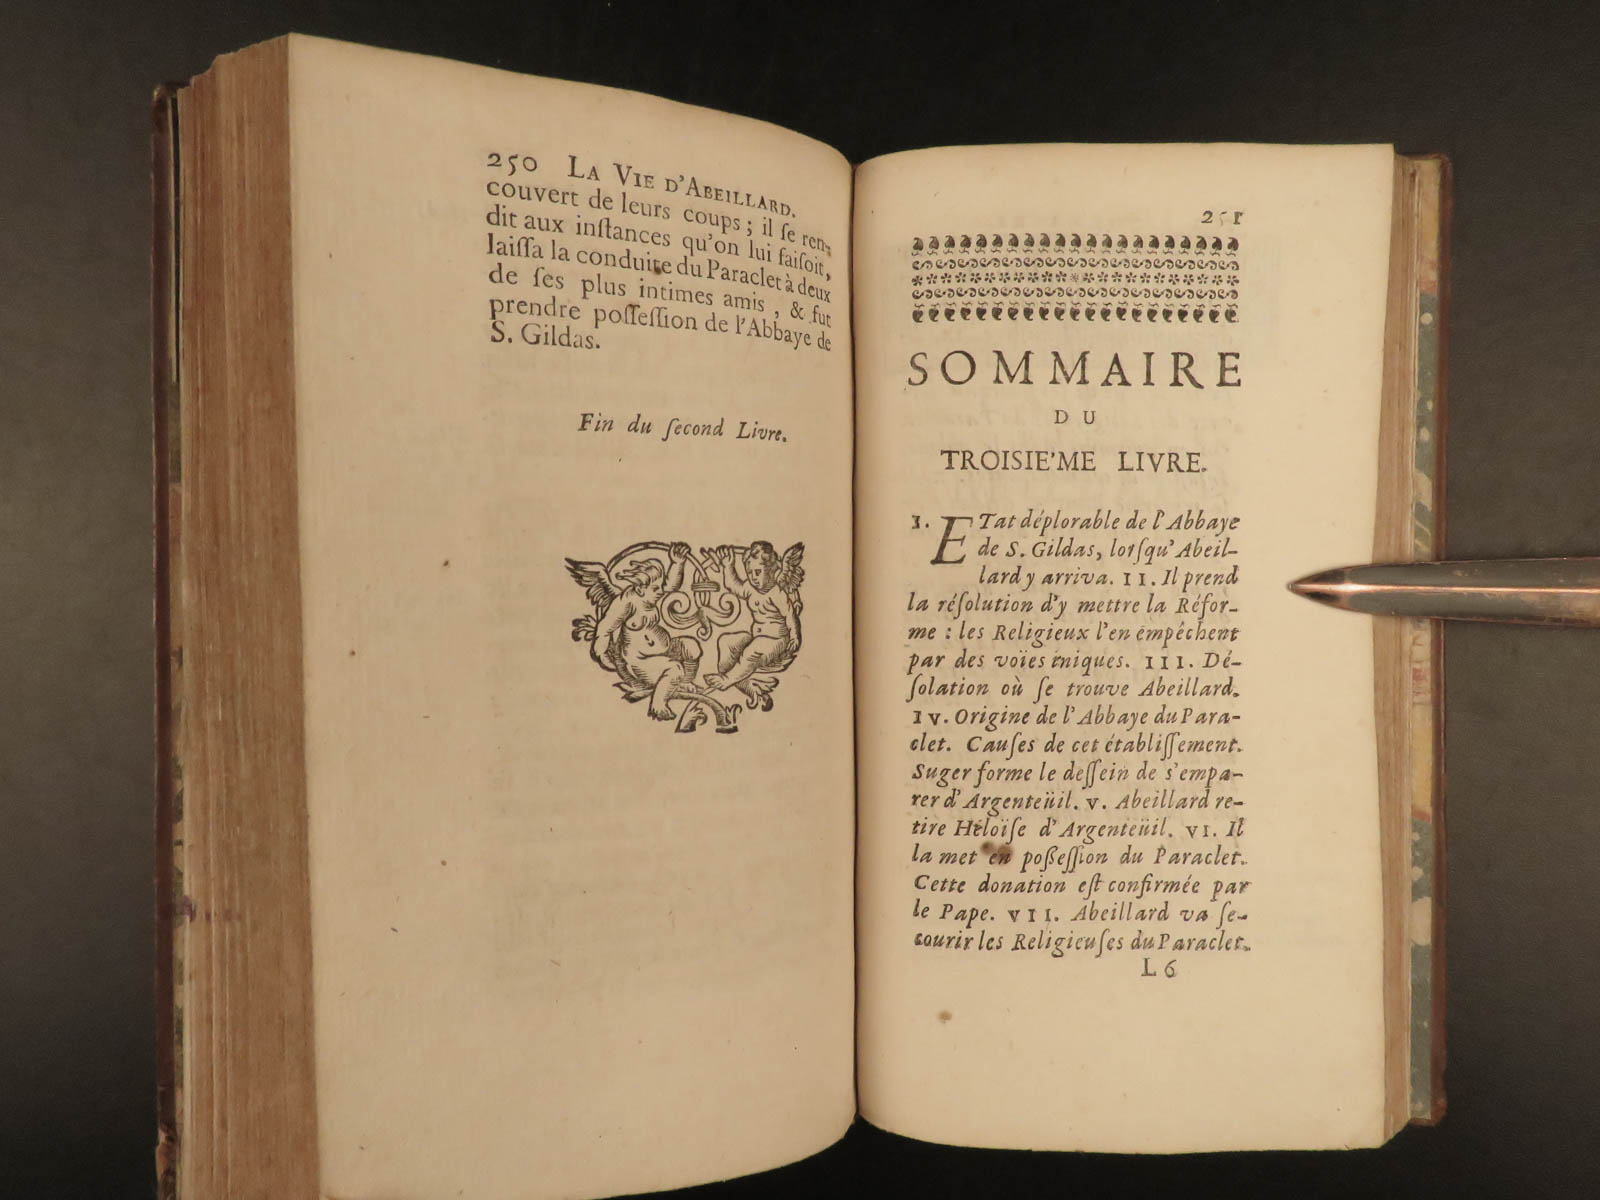 250 LA VIE D'ABEILLARD.
couvert de leurs coups ; il ſe ren-
dit aux inſtances qu'on lui faiſoit,
laiſſa la conduite du Paraclet à deux
de ſes plus intimes amis , & fut
prendre poſſeſſion de l'Abbaye de
S. Gildas.
Fin du ſecond Livre.
251
SOMMAIRE
DU
TROISIE'ME LIVRE.
I. ETat déplorable de l'Abbaye
de S. Gildas, lorſqu'Abeil-
lard y arriva. II. Il prend
la réſolution d'y mettre la Réfor-
me : les Religieux l'en empêchent
par des voïes iniques. III. Dé-
ſolation où ſe trouve Abeillard.
IV. Origine de l'Abbaye du Para-
clet. Cauſes de cet établiſſement.
Suger forme le deſſein de s'empa-
rer d'Argenteüil. V. Abeillard re-
tire Héloïſe d'Argenteüil. VI. Il
la met en poßeſſion du Paraclet.
Cette donation eſt confirmée par
le Pape. VII. Abeillard va ſe-
courir les Religieuſes du Paraclet.
L 6